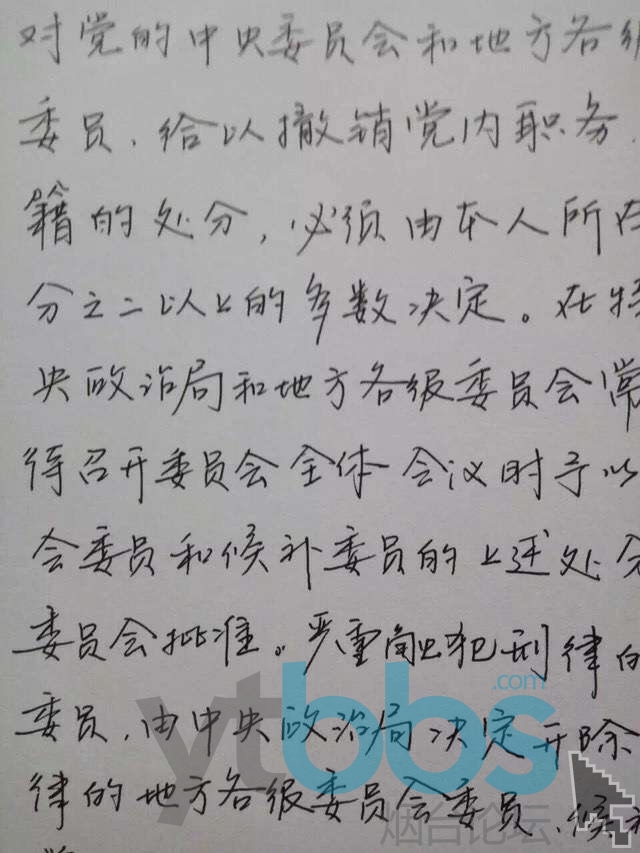 对党的中央委员会和地方各级
委员、给以撤销党内职务、
籍的处分，必须由本人所在
分之二以上的多数决定。在特
央政治局和地方各级委员会常
待召开委员会全体会议时予以
会委员和候补委员的上述处分
委员会批准。严重触犯刑律的
委员，由中央政治局决定开除
律的地方各级委员会委员、候补
ytbbs.com
烟台论坛